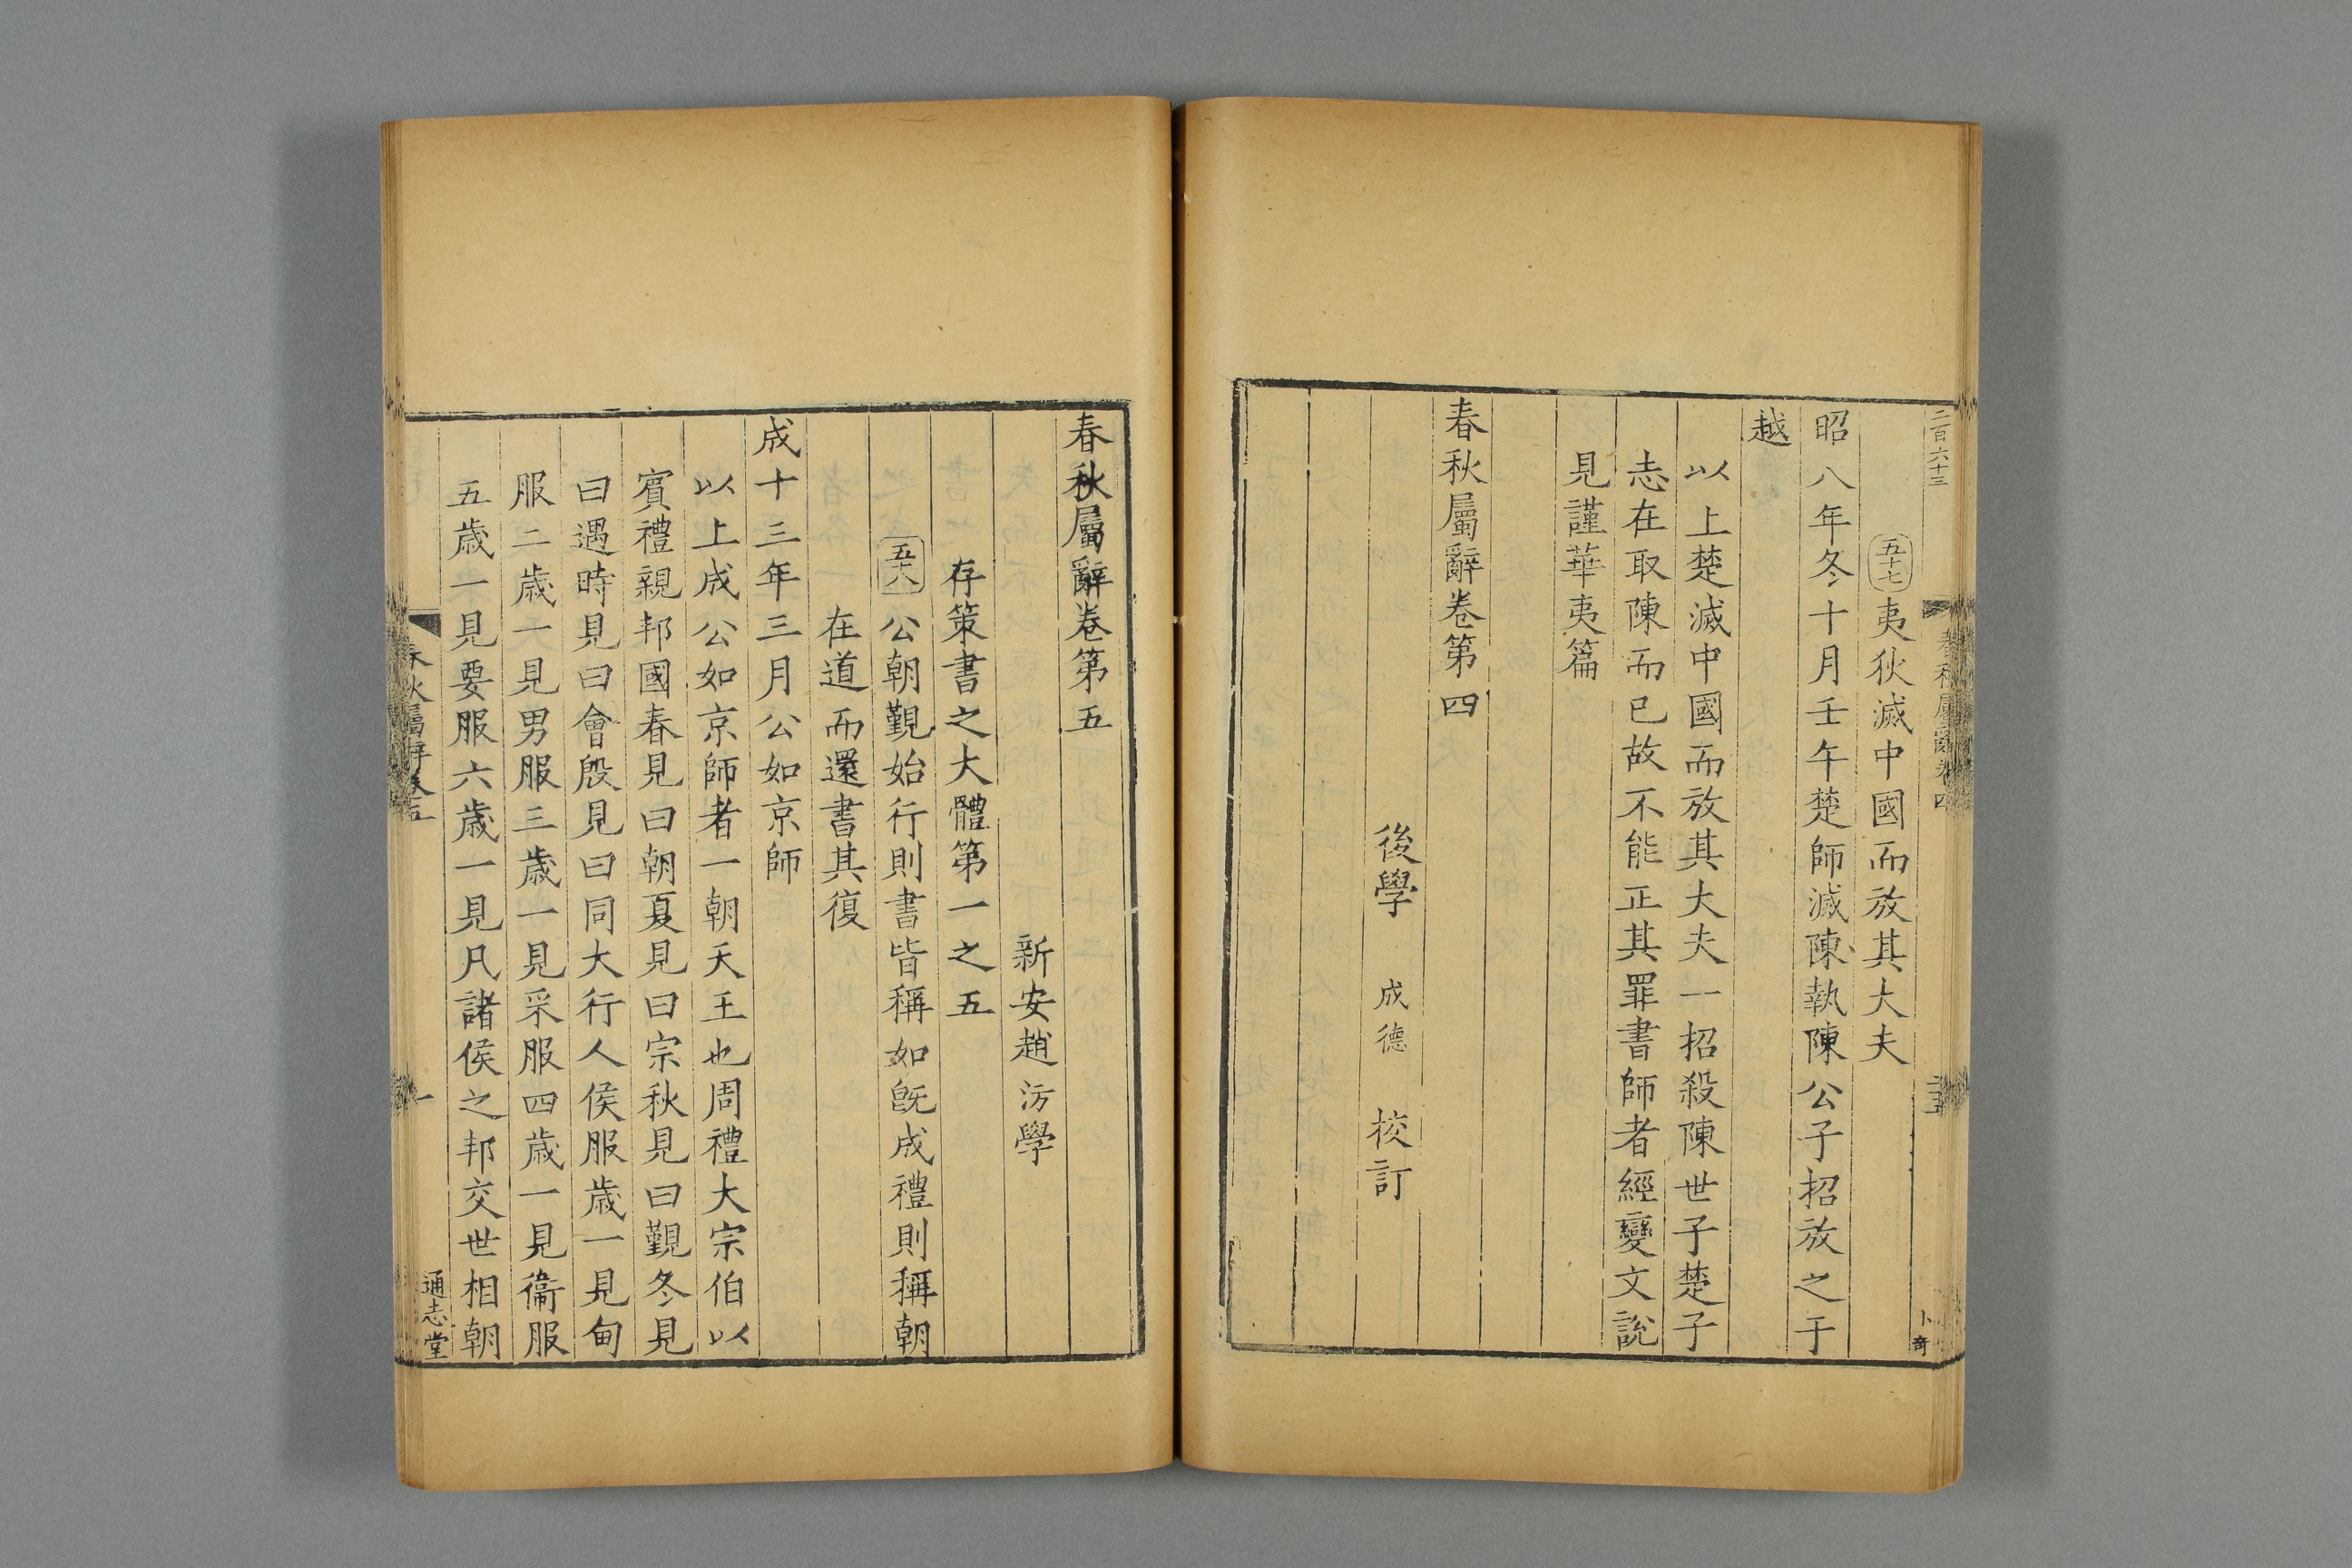 二百六十三
五十七 夷狄滅中國而放其大夫
昭八年冬十月壬午楚師滅陳執陳公子招放之于
越
以上楚滅中國而放其大夫一招殺陳世子楚子
志在取陳而已故不能正其罪書師者經變文說
見謹華夷篇
春秋屬辭卷第四
後學 成德 校訂
春秋屬辭卷第五
新安趙汸學
存策書之大體第一之五
五十八 公朝覲始行則書皆稱如旣成禮則稱朝
在道而還書其復
成十三年三月公如京師
以上成公如京師者一朝天王也周禮大宗伯以
賓禮親邦國春見曰朝夏見曰宗秋見曰覲冬見
曰遇時見曰會殷見曰同大行人侯服歲一見甸
服二歲一見男服三歲一見采服四歲一見衞服
五歲一見要服六歲一見凡諸侯之邦交世相朝
一
通志堂